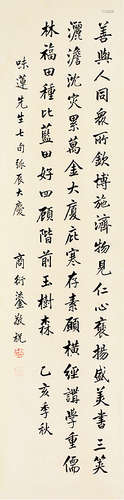 善與人同眾所欽博施濟物見仁心褒揚盛美書三笑
灑澹沈災累萬金大廈庇寒存素願橫經講學重儒
林福田種比藍田好四顧階前玉樹森 乙亥季秋
味蓮先生七旬𣲖辰大慶
商衍鎏敬祝